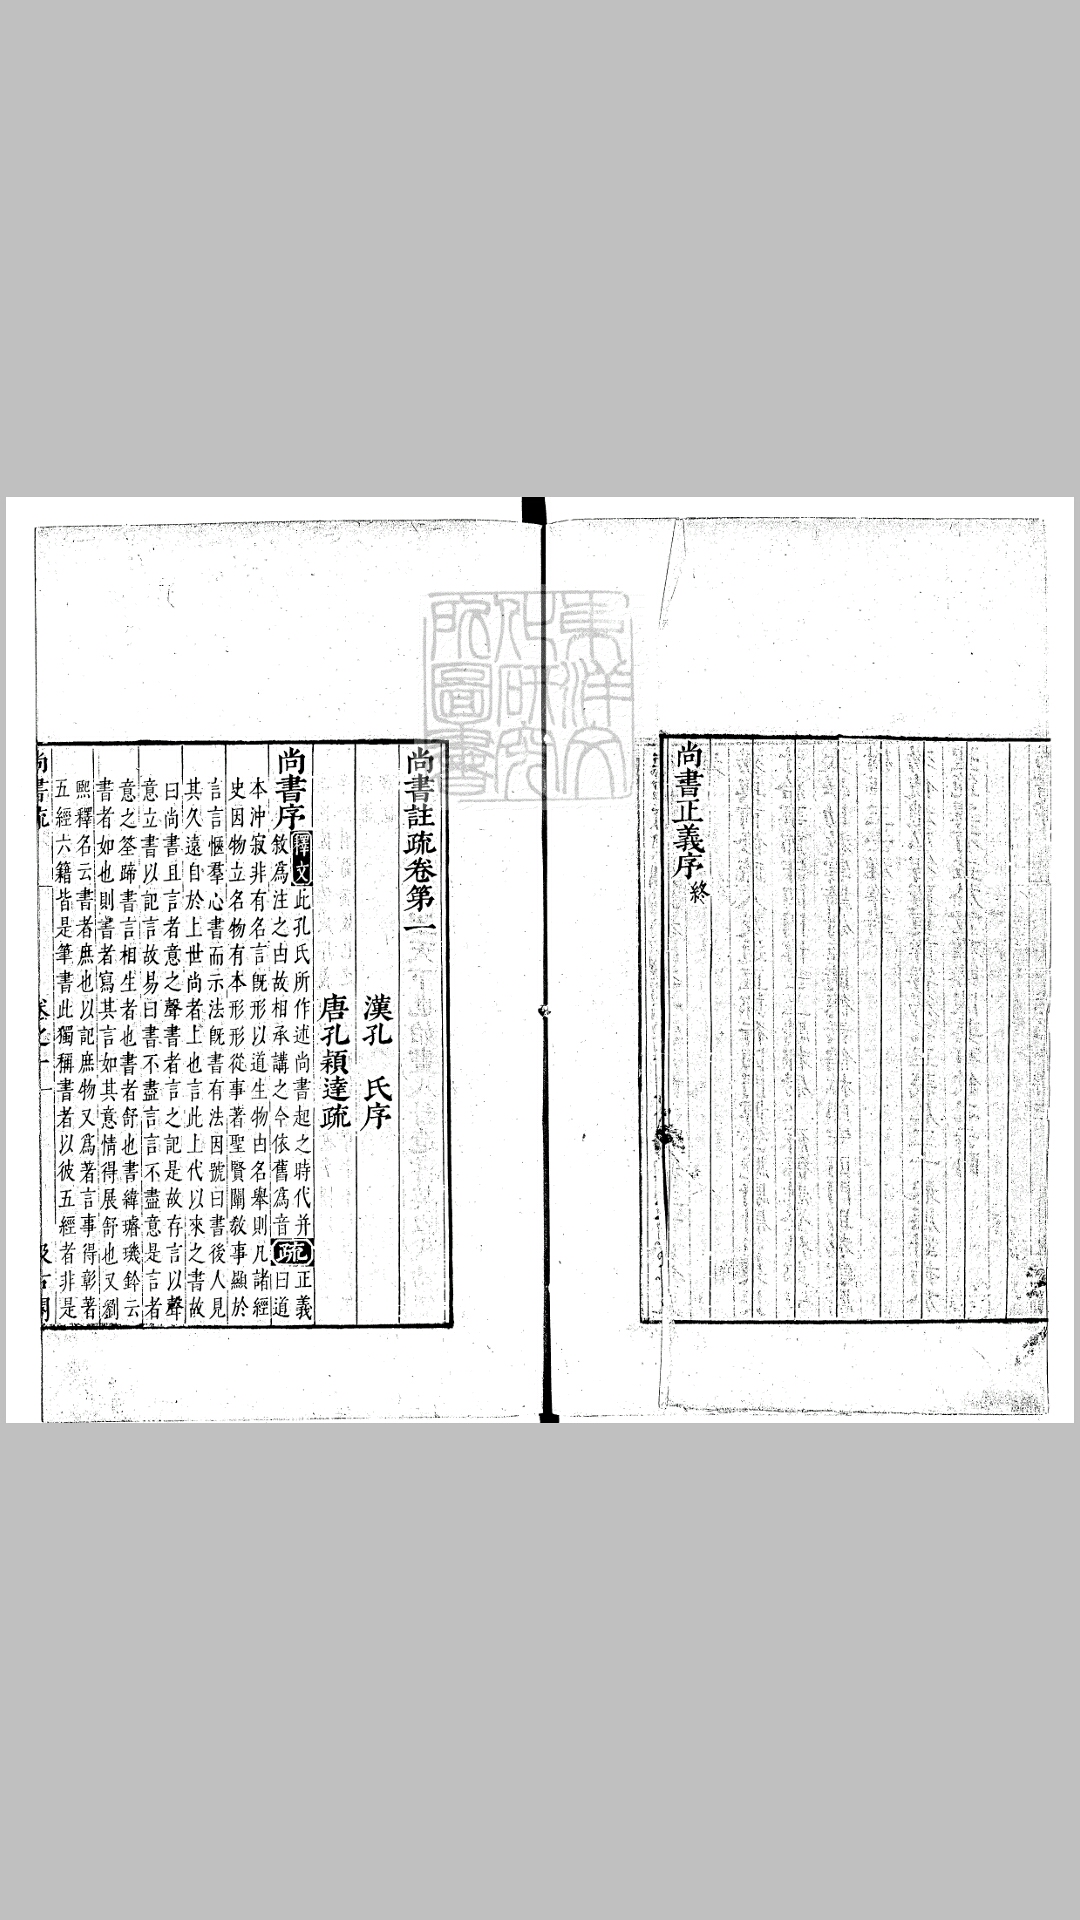 尚書正義序終
東洋文
化研究
所圖書
尚書註疏卷第一
漢孔　氏序
唐孔穎達疏
尚書序 釋文 此孔氏所作述尚書起之時代并
敘爲注之由故相承講之今依舊爲音 疏 正義
曰道
本沖寂非有名言旣形以道生物由名舉則凡諸經
史因物立名物有本形形從事著聖賢闡敎事顯於
言言愜羣心書而示法旣書有法因號曰書後人見
其久遠自於上世尚者上也言此上代以來之書故
曰尚書且言者意之聲書者言之記是故存言以聲
意立書以記言故易曰書不盡言言不盡意是言者
意之筌蹄書言相生者也書者舒也書緯璿璣鈐云
書者如也則書者寫其言如其意情得展舒也又劉
熙釋名云書者庶也以記庶物又爲著言事得彰著
五經六籍皆是筆書此獨稱書者以彼五經者非是
尚書疏 卷之一 一 汲古閣